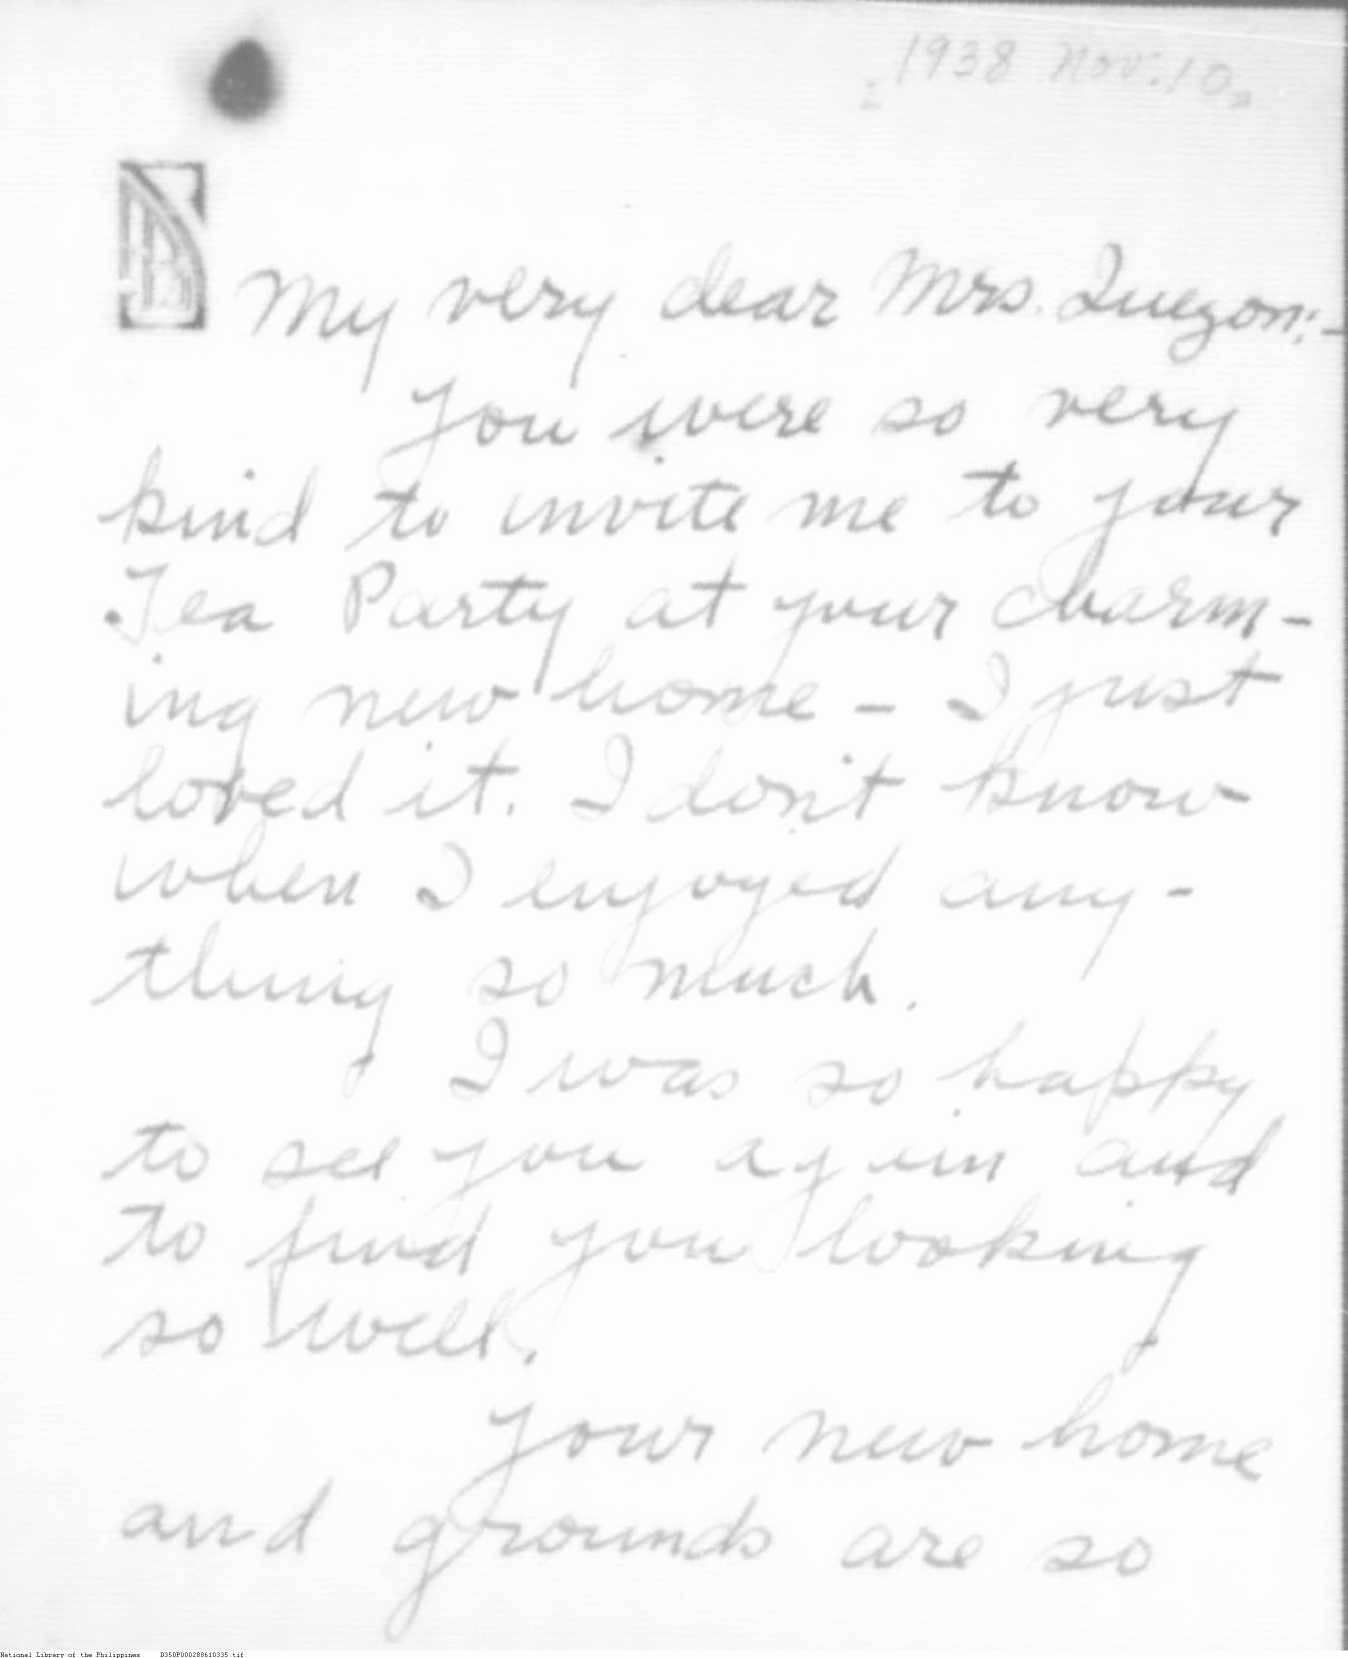 [1938 Nov. 10]
My very dear Mrs. Quezon:-
You were so very
kind to invite me to your
Tea Party at your charm-
ing new home - I just
loved it. I don't know
when I enjoyed any-
thing so much.
I was so happy
to see you again and
to find you looking
so well.
Your new home
and grounds are so
National Library of the Philippines D350P000288610335.tif